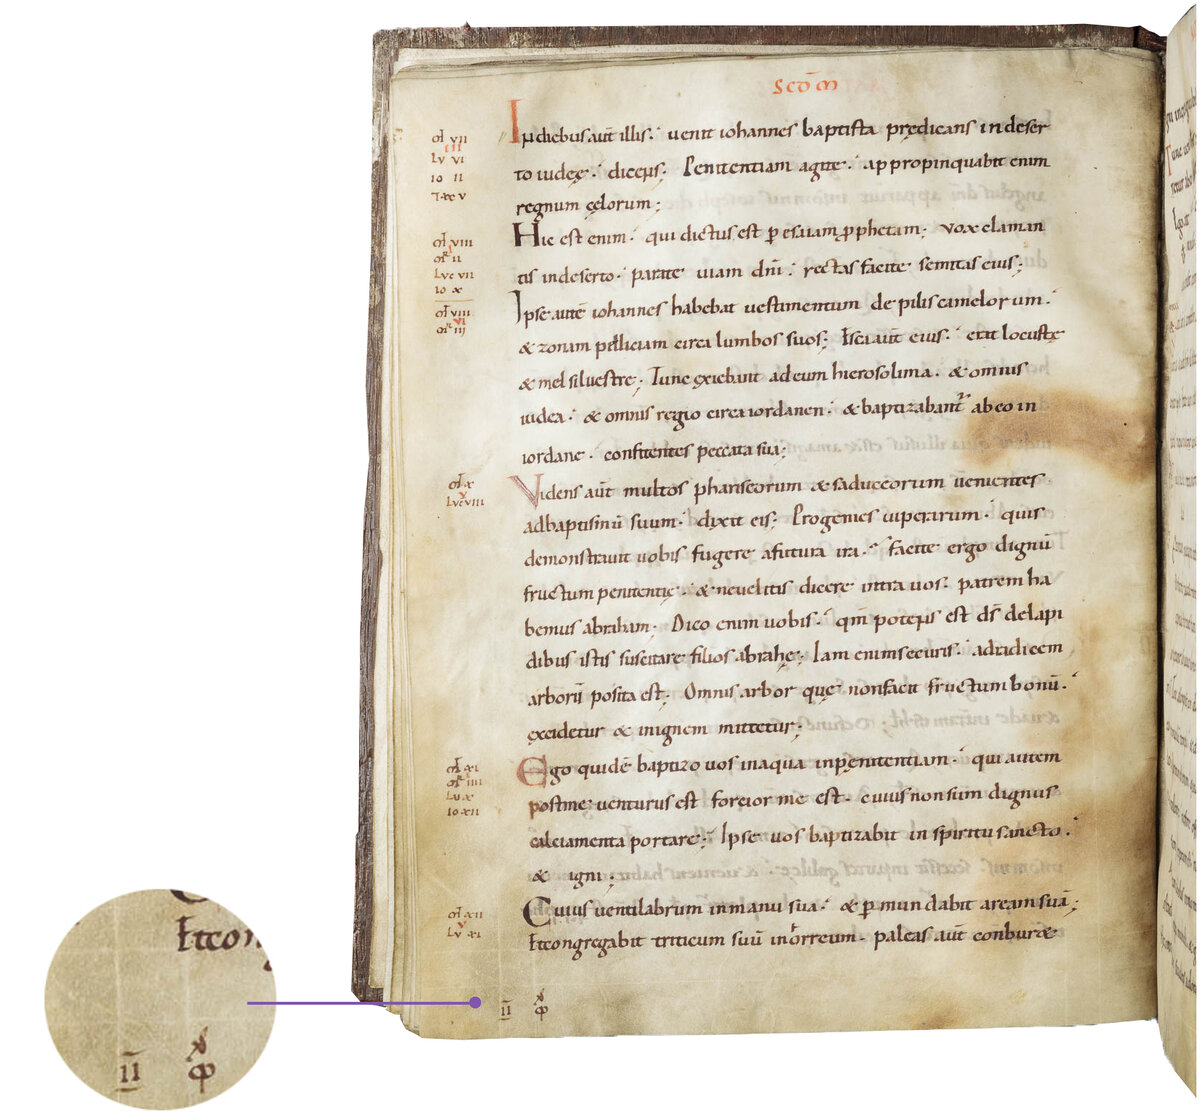 Scdm m
In diebus aut illis. uenit iohannes baptista predicans in deser
to iudeę. dicens. Penitentiam agite. appropinquabit enim
regnum cęlorum;
Hic est enim. qui dictus est p esaiam pphetam. vox claman
tis in deserto. parate uiam dni. rectas facite semitas eius;
Ipse aute iohannes habebat uestimentum de pilis camelorum.
& zonam pelliciam circa lumbos suos; Esca aut eius. erat locustę
& mel siluestre; Tunc exiebant ad eum hierosolima. & omnis
iudea. & omnis regio circa iordanen. & baptizabant ab eo in
iordane. confitentes peccata sua;
Videns aut multos phariseorum & saduceorum uenientes
ad baptismu suum. dixit eis. Progenies uiperarum. quis
demonstrauit uobis fugere a futura ira. Facite ergo dignu
fructum penitentię. & ne uelitis dicere intra uos. patrem ha
bemus abraham. Dico enim uobis. qm potens est ds de lapi
dibus istis suscitare filios abrahę. Iam enim securis. ad radicem
arboru posita est. Omnis arbor quę non facit fructum bonu.
excidetur & in ignem mittetur;
Ego quide baptizo uos in aqua in penitentiam. qui autem
post me uenturus est forcior me est. cuius non sum dignus
calciamenta portare; Ipse uos baptizabit in spiritu sancto.
& igni;
Cuius uentilabrum in manu sua. & p mundabit aream sua;
Et congregabit triticum suu in orreum. paleas aut conburæ
mt vii
iii
lv vi
io ii
mt viii
mr ii
lvc vii
io x
mt viiii
vi
mr iii
mt x
v
lvc viii
mt xi
mr iiii
lv x
io xii
mt xii
v
lv xi
ii
Et con
ii